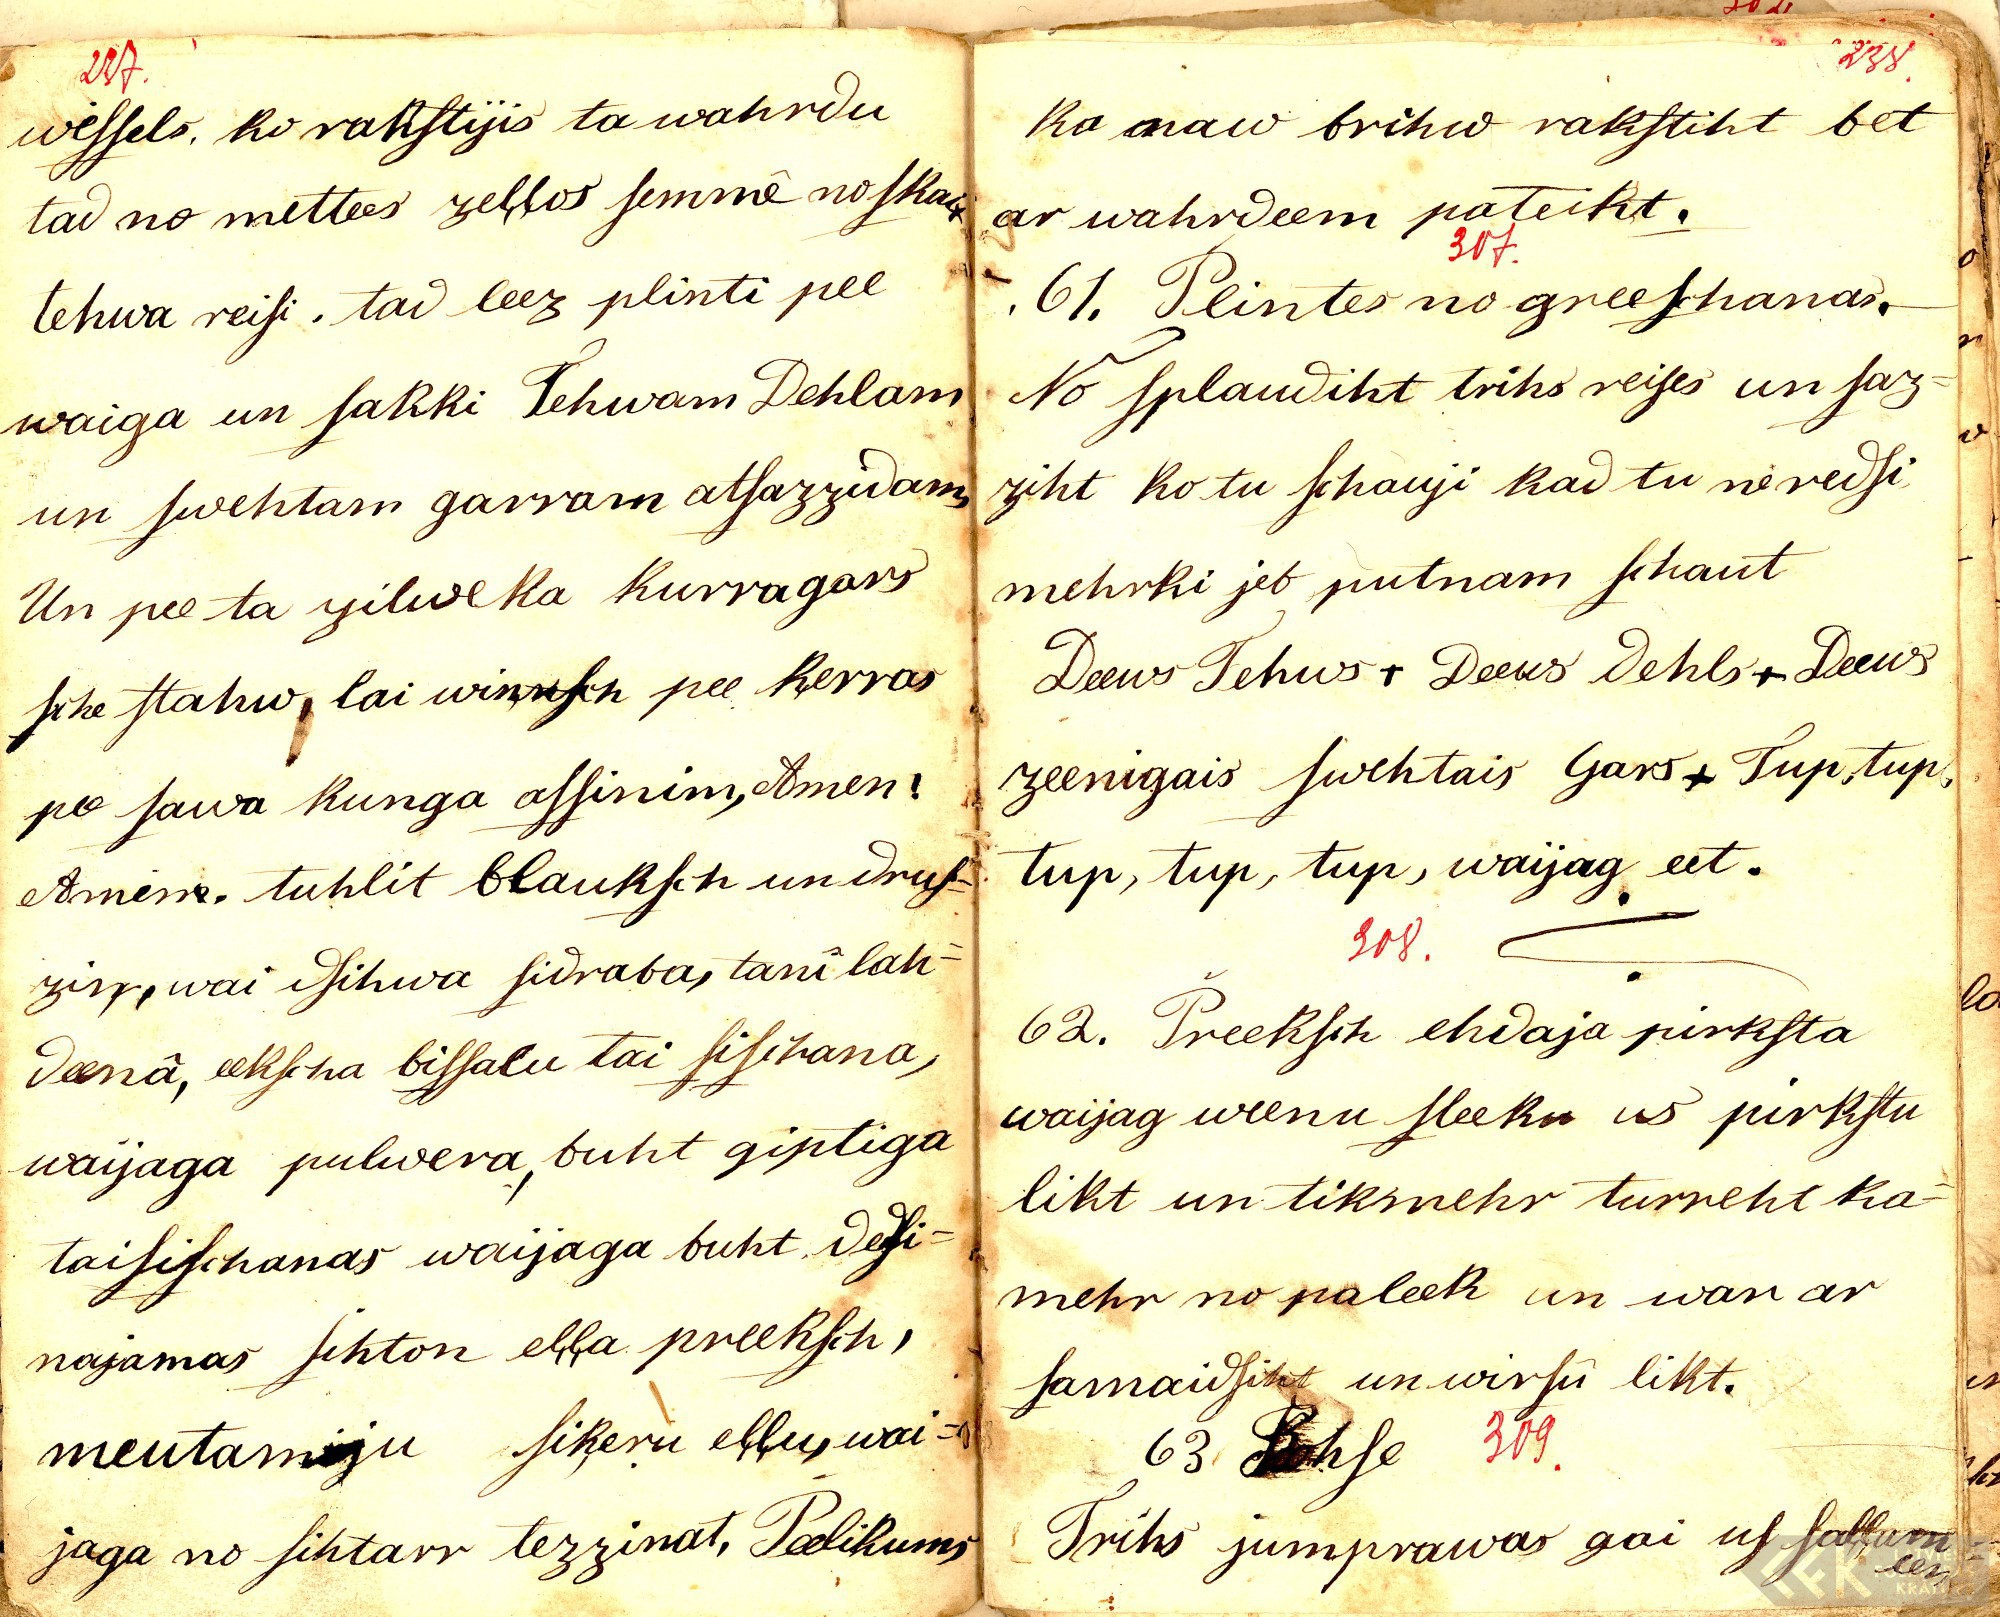 237.
wessels. ko rakstijis ta wahrdu
tad no mettees zellos semmê noskait
tehwa reisi. tad leez plinti pee
waiga un sakki Tehwam Dehlam
un swehtam garram atsazzidams
Un pee ta zilweka kurra gars
sche stahw, lai winsch pee kerras
pe sawa kunga assinim, Amen!
Amen. tuhlit blauksch un drus-
zin, wai dsihwa sidraba, tanî lah-
deenâ, eekscha bissalu tai sischana,
waijaga pulwera, buht giptiga
tai sischanas waijaga buht dedsi-
najamas sihton ella preeksch,
meutamiju sikeru ellu, wai-
jaga no sihtarr tezzinat. Peelikums
238.
Ka naw brihw rakstiht bet
ar wahrdeem pateikt.
307.
61. Plintes no greeschanas.
No splaudiht trihs reises un saz-
ziht ko tu schauji kad tu neredsi
mehrki jeb putnam schaut
Deews Tehws + Deews dehls + Deews
zeenigais swehtais Gars + Tup, tup,
tup, tup, tup, waijag eet.
308.
62. Preeksch ehdaja pirksta
waijag weenu sleeku us pirkstu
likt un tikmehr turreht ka-
mehr no paleek un war ar
samaidsiht un wirsû likt.
63 Rohse 309.
Trihs jumprawas gai us sallum